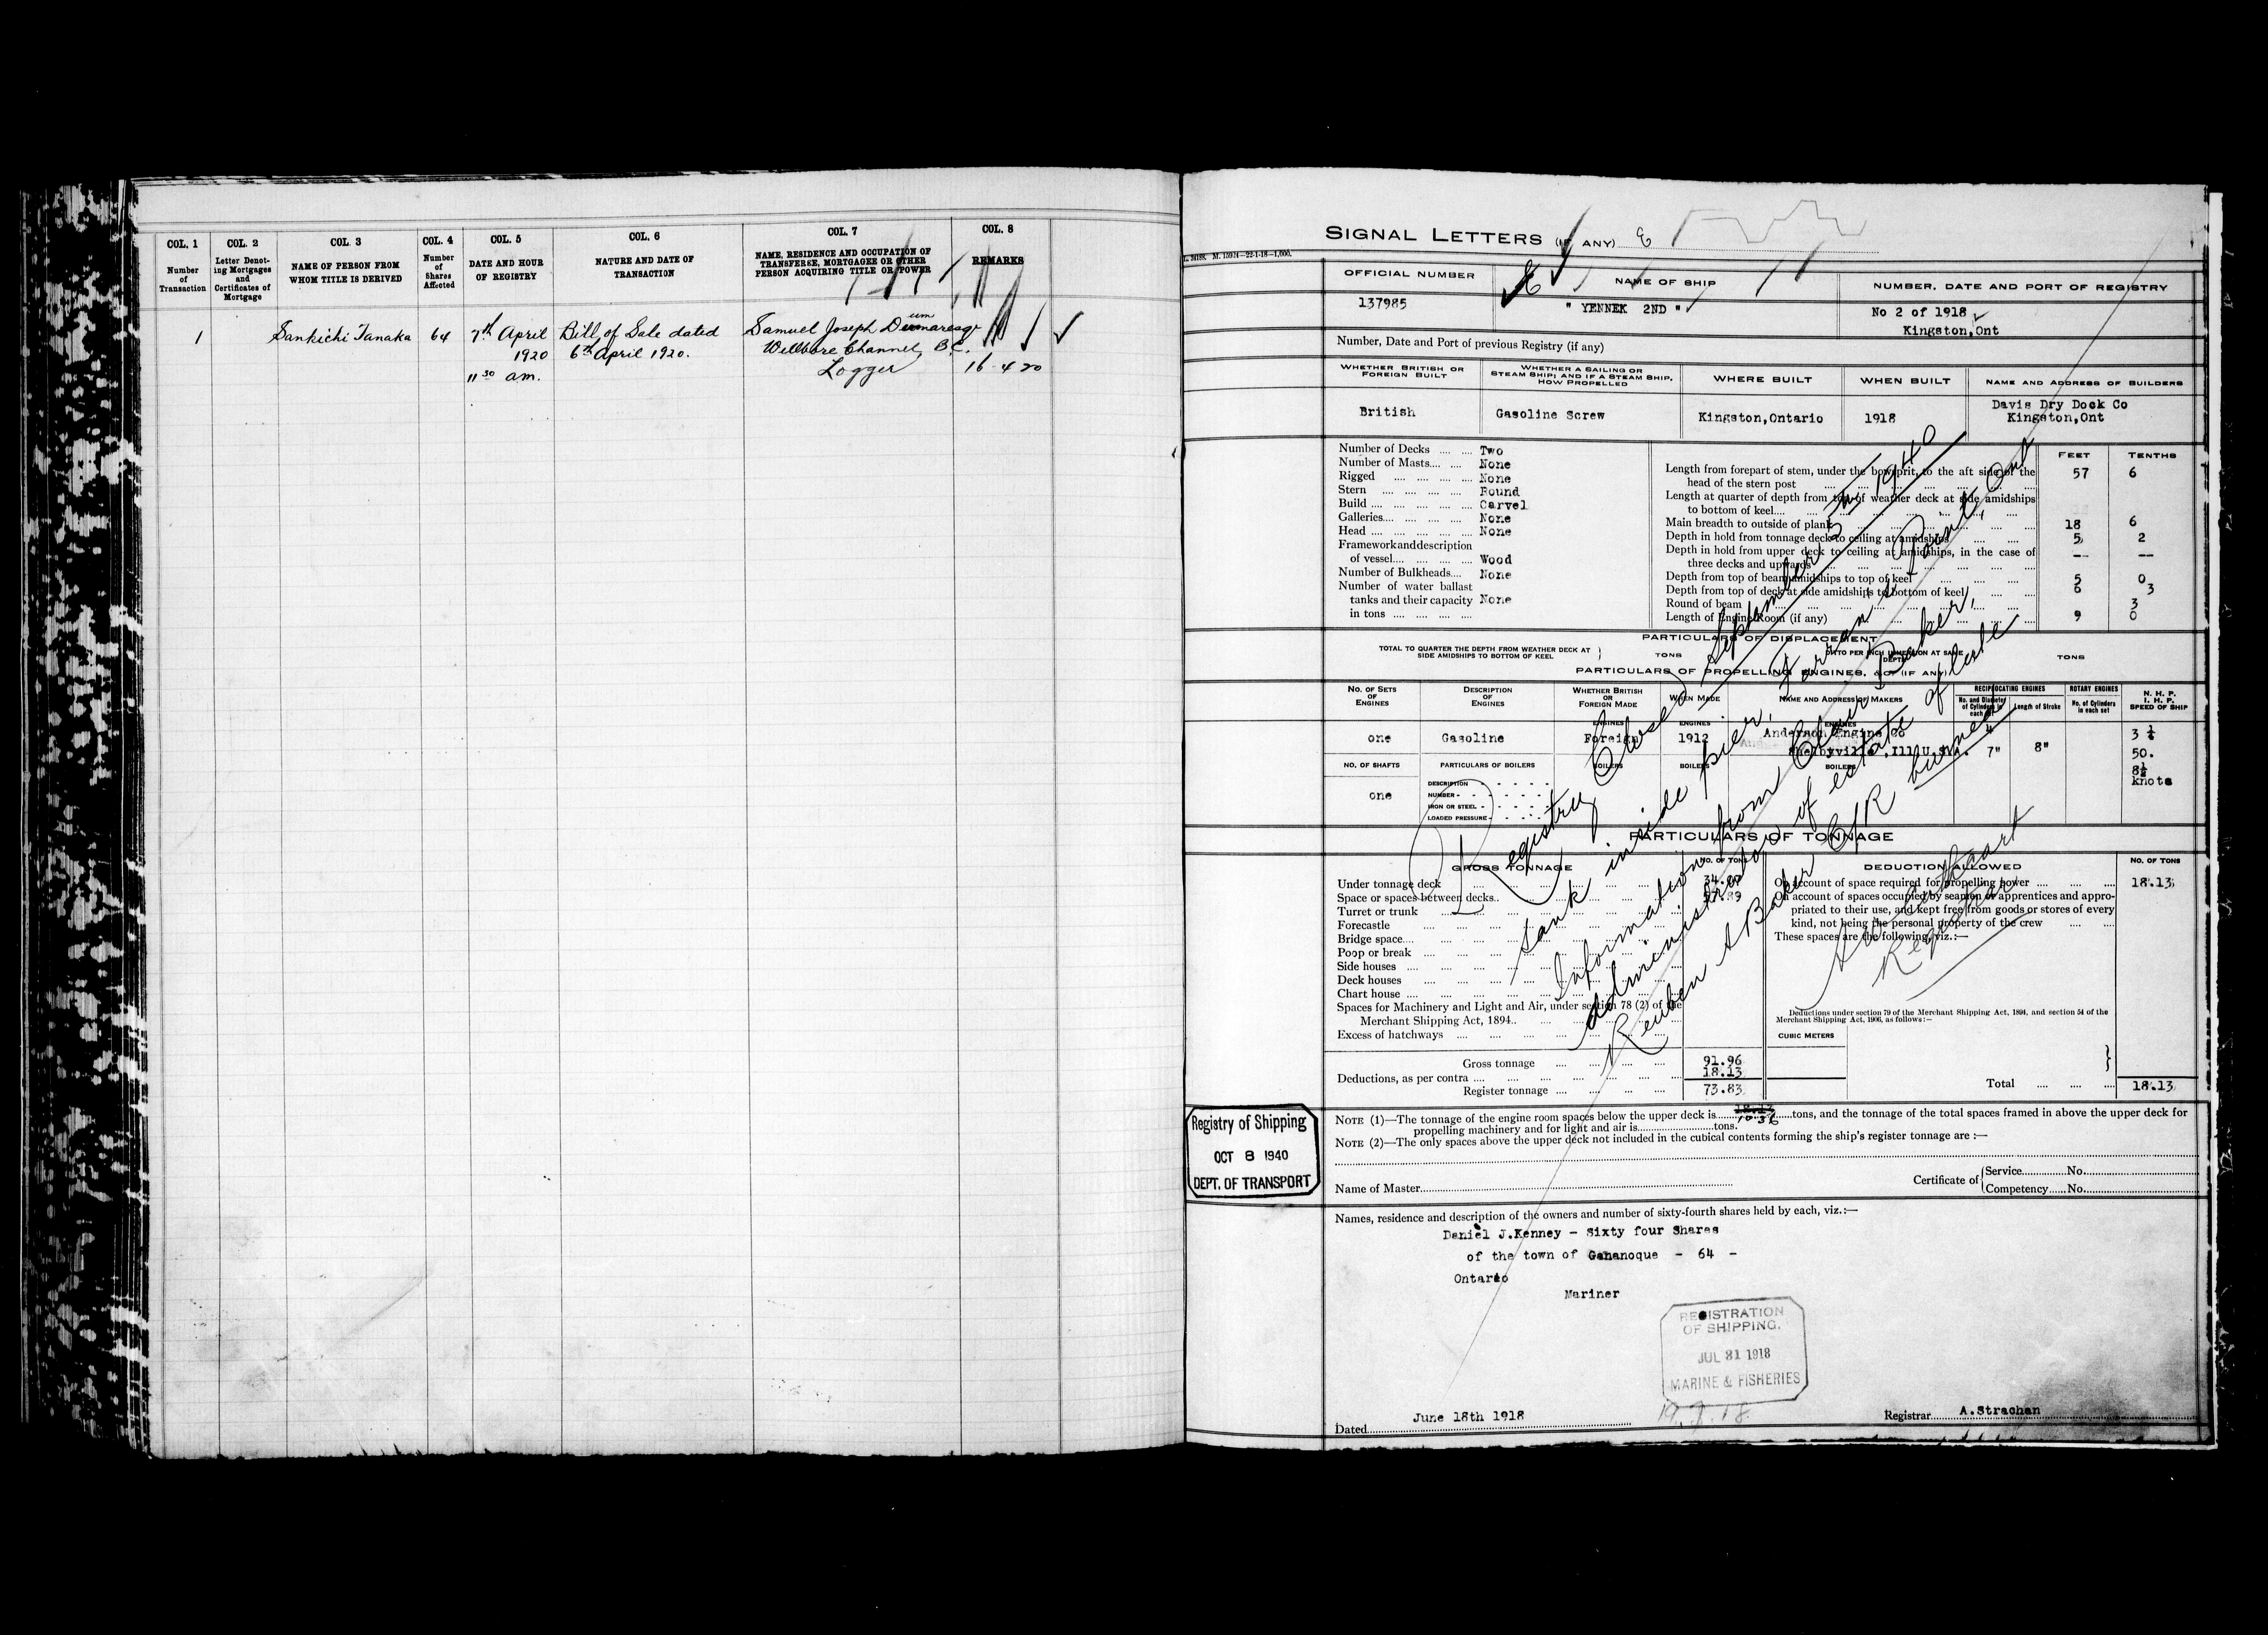 COL. 1
Number
of
Transaction
COL. 2
Letter Denot-
ing Mortgages
and
Certificates of
Mortgage
COL. 3
NAME OF PERSON FROM
WHOM TITLE IS DERIVED
COL. 4
Number
of
Shares
Affected
COL. 5
DATE AND HOUR
OF REGISTRY
COL. 6
NATURE AND DATE OF
TRANSACTION
COL. 7
NAME, RESIDENCE AND OCCUPATION OF
TRANSFEREE, MORTGAGEE OR OTHER
PERSON ACQUIRING TITLE OR POWER
COL. 8
REMARKS
1 Sankichi Tanaka 64 7th April Bill of Sale dated Samuel Joseph
1920 6th April 1920. Wellbore Channel, B.C.
11 30 am. Logger 16-4-20
SIGNAL LETTERS (IF ANY)
OFFICIAL NUMBER
137985
NAME OF SHIP
" YENNEK 2ND "
NUMBER, DATE AND PORT OF REGISTRY
No 2 of 1918
Kingston,Ont
Number, Date and Port of previous Registry (if any)
WHETHER BRITISH OR
FOREIGN BUILT
British
WHETHER A SAILING OR
STEAM SHIP; AND IF A STEAM SHIP,
HOW PROPELLED
Gasoline Screw
WHERE BUILT
Kingston,Ontario
WHEN BUILT
1918
NAME AND ADDRESS OF BUILDERS
Davis Dry Dock Co
Kingston,Ont
Number of Decks Two
Number of Masts None
Rigged None
Stern Round
Build Carvel
Galleries None
Head None
Framework and description
of vessel Wood
Number of Bulkheads None
Number of water ballast
tanks and their capacity None
in tons
FEET TENTHS
Length from forepart of stem, under the bowsprit, to the aft side of the
head of the stern post 57 6
Length at quarter of depth from top of weather deck at side amidships
to bottom of keel
Main breadth to outside of plank 18 6
Depth in hold from tonnage deck to ceiling at amidships 5 2
Depth in hold from upper deck to ceiling at amidships, in the case of
three decks and upwards -- --
Depth from top of beam amidships to top of keel 5 0
Depth from top of deck at side amidships to bottom of keel 6 3
Round of beam 3
Length of Engine Room (if any) 9 0
PARTICULARS OF DISPLACEMENT
TOTAL TO QUARTER THE DEPTH FROM WEATHER DECK AT
SIDE AMIDSHIPS TO BOTTOM OF KEEL
TONS
DITTO PER INCH IMMERSION AT SAME
DEPTH
TONS
PARTICULARS OF PROPELLING ENGINES, &C. (IF ANY)
NO. OF SETS
OF
ENGINES
DESCRIPTION
OF
ENGINES
WHETHER BRITISH
OR
FOREIGN MADE
WHEN MADE
NAME AND ADDRESS OF MAKERS
RECIPROCATING ENGINES
No. and Diameter
of Cylinders in
each set
Length of Stroke
ROTARY ENGINES
No. of Cylinders
in each set
N. H. P.
I. H. P.
SPEED OF SHIP
ENGINES ENGINES ENGINES
one Gasoline Foreign 1912 Anderson Engine Co
Shelbyville. Ill U.
4
7" 8"
50.
8½
knots
NO. OF SHAFTS
one
PARTICULARS OF BOILERS
BOILERS BOILERS BOILERS
DESCRIPTION
NUMBER
IRON OR STEEL
LOADED PRESSURE
PARTICULARS OF TONNAGE
GROSS TONNAGE NO. OF TONS
Under tonnage deck
Space or spaces between decks
Turret or trunk
Forecastle
Bridge space
Poop or break
Side houses
Deck houses
Chart house
Spaces for Machinery and Light and Air, under section 78 (2) of the
Merchant Shipping Act, 1894
Excess of hatchways
Gross tonnage 91.96
Deductions, as per contra 18.13
Register tonnage 73.83
DEDUCTION ALLOWED NO. OF TONS
On account of space required for propelling power 18.13
On account of spaces occupied by seamen or apprentices and appro-
priated to their use, and kept free from goods or stores of every
kind, not being the personal property of the crew
These spaces are the following, viz.:—
Deductions under section 79 of the Merchant Shipping Act, 1894, and section 54 of the
Merchant Shipping Act, 1906, as follows:—
CUBIC METERS
Total 18.13
Registry Closed September 5th 1940
Sank inside pier, Farran's Point, Ont
Information from Baker,
administrator of estate of late
Reuben A Baker O/R
Registrar
Registry of Shipping
OCT 8 1940
DEPT. OF TRANSPORT
NOTE (1)—The tonnage of the engine room spaces below the upper deck is 10.36 tons, and the tonnage of the total spaces framed in above the upper deck for
propelling machinery and for light and air is tons.
NOTE (2)—The only spaces above the upper deck not included in the cubical contents forming the ship's register tonnage are :—
Name of Master
Certificate of { Service No.
Competency No.
Names, residence and description of the owners and number of sixty-fourth shares held by each, viz.:—
Daniel J.Kenney - Sixty four Shares
of the town of Gananoque - 64 -
Ontario
Mariner
REGISTRATION
OF SHIPPING.
JUL 31 1918
MARINE & FISHERIES
Dated June 18th 1918
Registrar A.Strachan